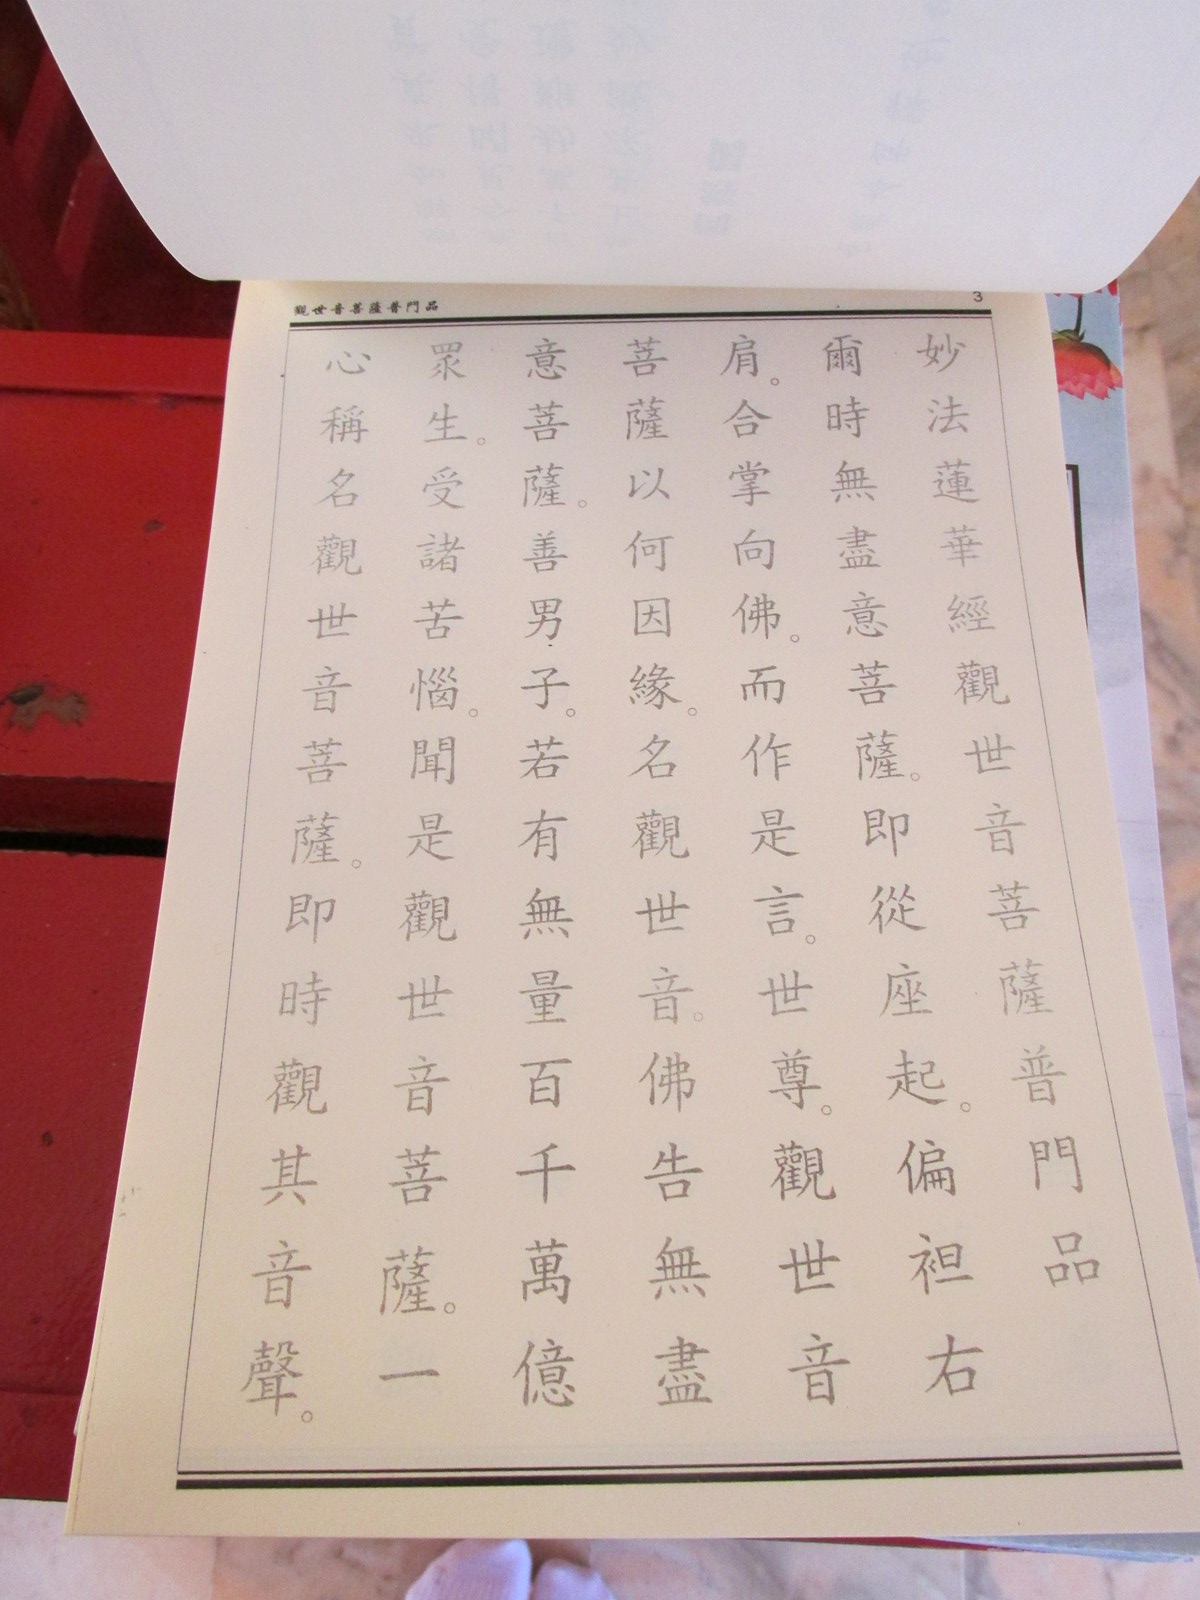 觀世音菩薩普門品
3
妙法蓮華經觀世音菩薩普門品
爾時無盡意菩薩。即從座起。偏袒右
肩。合掌向佛。而作是言。世尊。觀世音
菩薩以何因緣。名觀世音。佛告無盡
意菩薩。善男子。若有無量百千萬億
眾生。受諸苦惱。聞是觀世音菩薩。一
心稱名觀世音菩薩。即時觀其音聲。